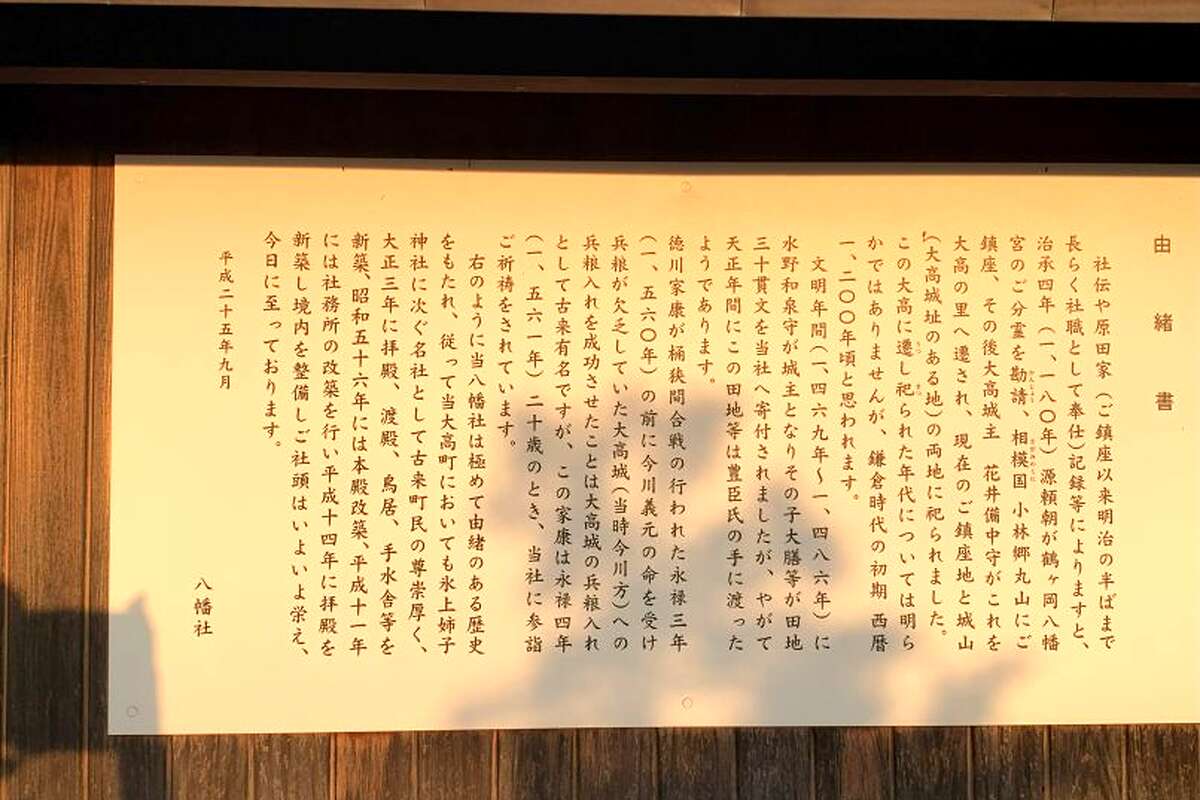 由緒書
社伝や原田家(ご鎮座以来明治の半ばまで
長らく社職として奉仕)記録等によりますと、
治承四年(一、一八〇年)源頼朝が鶴ヶ岡八幡
宮のご分霊を勘請、相模国 小林郷丸山にご
鎮座、その後大高城主 花井備中守がこれを
大高の里へ遷され、現在のご鎮座地と城山
(大高城址のある地)の両地に祀られました。
この大高に遷し祀られた年代については明ら
かではありませんが、鎌倉時代の初期 西暦
一、二〇〇年頃と思われます。
文明年間(一、四六九年〜一、四八六年)に
水野和泉守が城主となりその子大膳等が田地
三十貫文を当社へ寄付されましたが、やがて
天正年間にこの田地等は豊臣氏の手に渡った
ようであります。
徳川家康が桶狭間合戦の行われた永禄三年
(一、五六〇年)の前に今川義元の命を受け
兵粮が欠乏していた大高城(当時今川方)への
兵粮入れを成功させたことは大高城の兵粮入れ
として古来有名ですが、この家康は永禄四年
(一、五六一年)二十歳のとき、当社に参詣
ご祈祷をされています。
右のように当八幡社は極めて由緒のある歴史
をもたれ、従って当大高町においても氷上姉子
神社に次ぐ名社として古来町民の尊崇厚く、
大正三年に拝殿、渡殿、鳥居、手水舎等を
新築、昭和五十六年には本殿改築、平成十一年
には社務所の改築を行い平成十四年に拝殿を
新築し境内を整備しご社頭はいよいよ栄え、
今日に至っております。
平成二十五年九月
八幡社